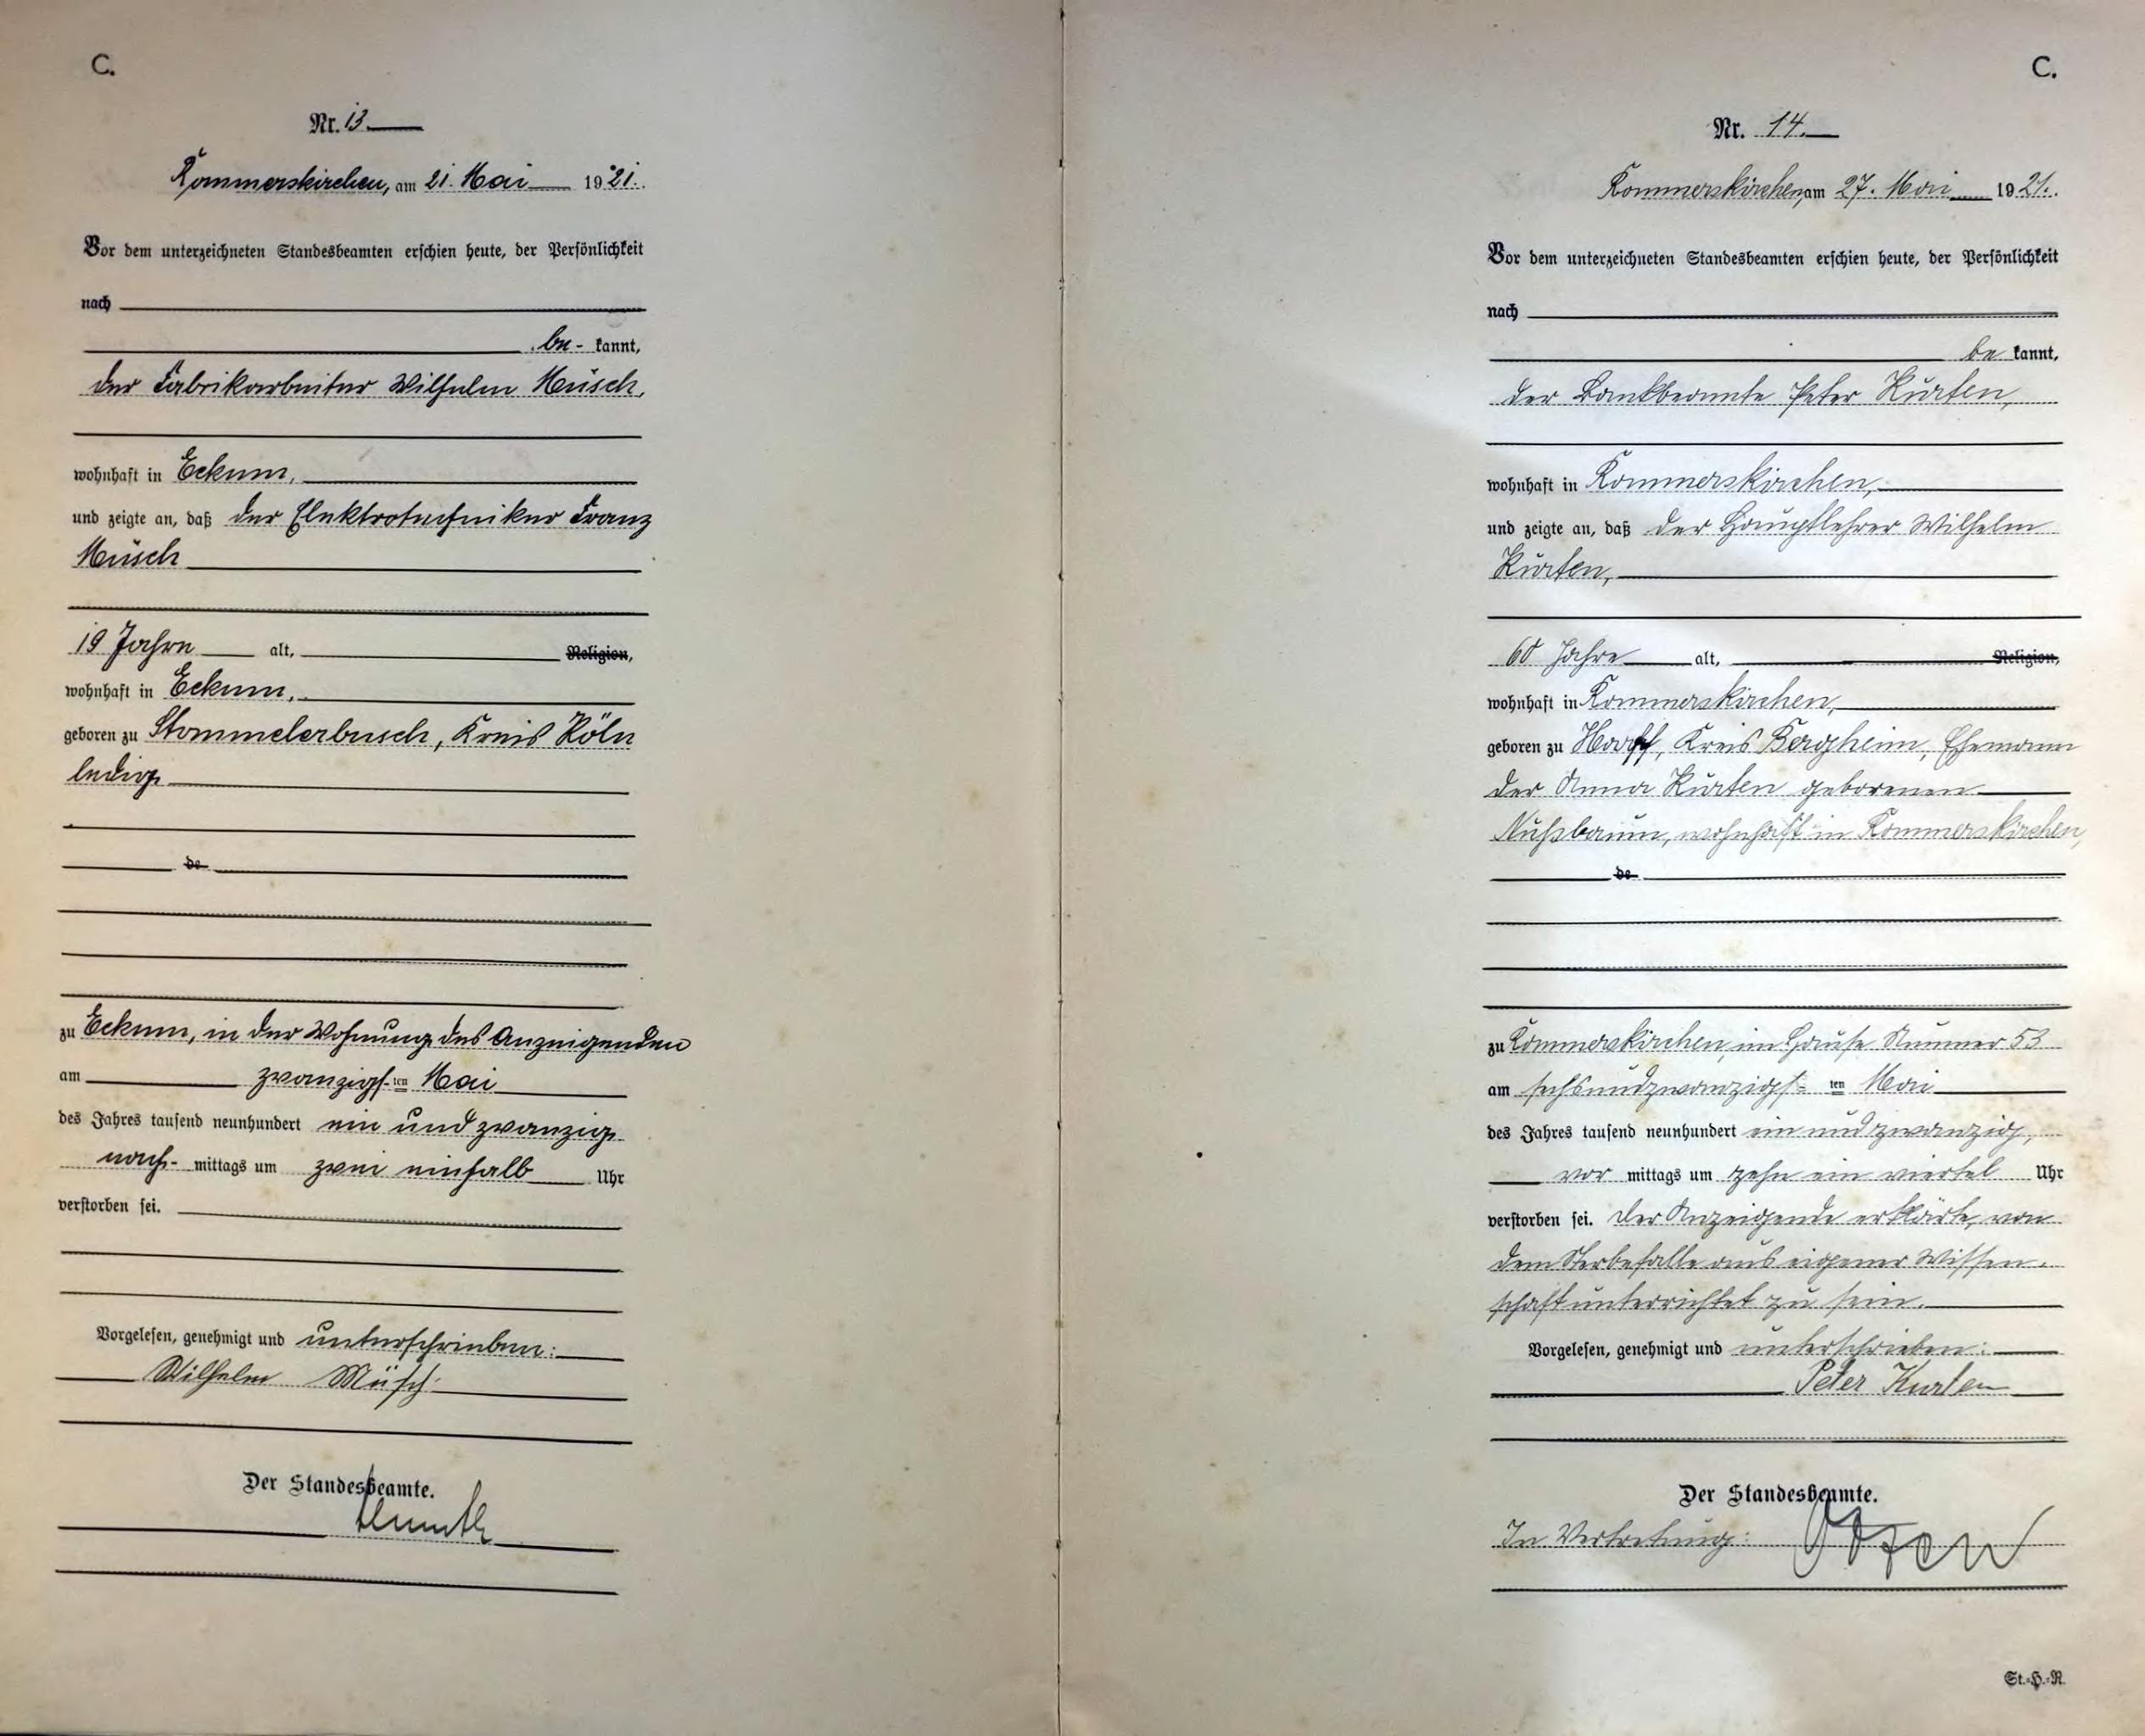 C.
Nr. 13.
Rommerskirchen, am 21. Mai 1921.
Vor dem unterzeichneten Standesbeamten erschien heute, der Persönlichkeit
nach
be- kannt,
der Fabrikarbeiter Wilhelm Müsch,
wohnhaft in Eckum,
und zeigte an, daß der Elektrotechniker Franz
Müsch
19 Jahre alt, Religion,
wohnhaft in Eckum,
geboren zu Stommelerbusch, Kreis Köln
ledig
de
zu Eckum, in der Wohnung des Anzeigenden
am zwanzigs- ten Mai
des Jahres tausend neunhundert ein und zwanzig
nach- mittags um zwei einhalb Uhr
verstorben sei.
Vorgelesen, genehmigt und unterschrieben:
Wilhelm Müsch.
Der Standesbeamte.
C.
Nr. 14.
Rommerskirchen, am 27. Mai 1921.
Vor dem unterzeichneten Standesbeamten erschien heute, der Persönlichkeit
nach
be kannt,
der Bankbeamte Peter Kürten,
wohnhaft in Rommerskirchen,
und zeigte an, daß der Hauptlehrer Wilhelm
Kürten,
60 Jahre alt, Religion,
wohnhaft in Rommerskirchen,
geboren zu Harff, Kreis Bergheim, Ehemann
der Anna Kürten geborenen
Nußbaum, wohnhaft in Rommerskirchen,
de
zu Rommerskirchen, im Hause Nummer 53
am sechsundzwanzigs- ten Mai
des Jahres tausend neunhundert ein und zwanzig,
vor mittags um zehn ein viertel Uhr
verstorben sei. Der Anzeigende erklärte, von
dem Sterbefalle aus eigener Wissen-
schaft unterrichtet zu sein.
Vorgelesen, genehmigt und unterschrieben:
Peter Kürten
Der Standesbeamte.
In Vertretung:
St.-H.-R.